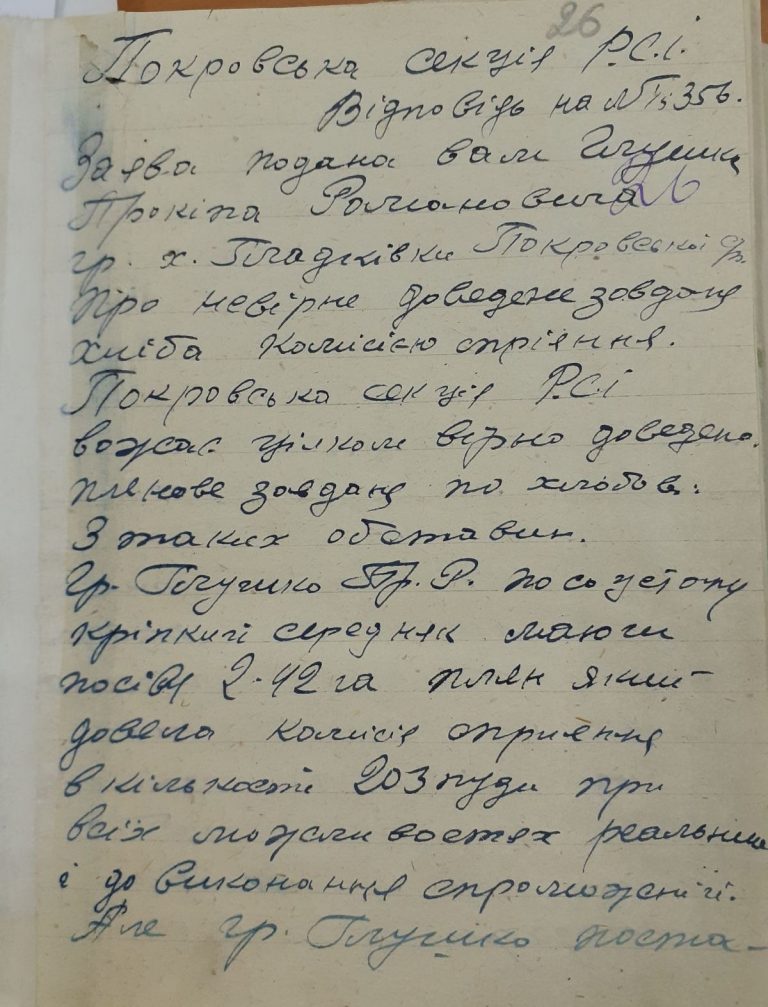 26
Покровська секція Р.С.І.
Відповідь на № 356.
Заява подана вам Глушка
26
Прокіпа Романовича
гр. х. Гладківки Покровської с/р.
про невірне доведене завданя
хліба комісією спріяння.
Покровська секція Р.С.І
вожає цілком вірно доведено
плянове завданя по хлібов.
З таких обставин.
Гр. Глушко Пр. Р. по соцстану
кріпкий середняк маючи
посів 2.42 га плян який
довела комісія сприяння
в кількости 203 пуди при
всіх можливостях реальний
і до виконання спроможній.
Але гр. Глушко поста-